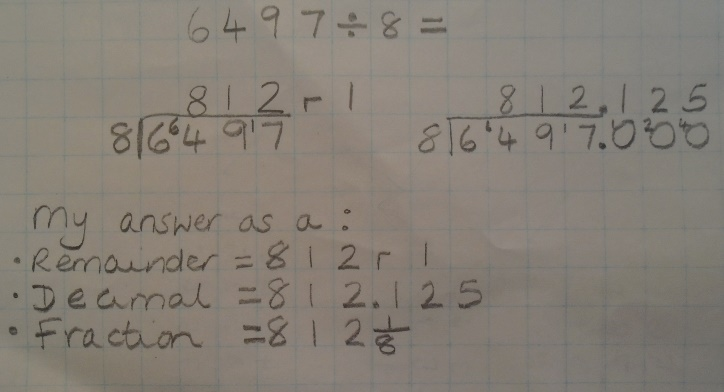 6497÷8=
812 r 1
8|6⁶49¹7
812.125
8|6⁶49¹7.0²0⁴0
my answer as a:
·Remainder = 812 r 1
·Decimal = 812.125
·Fraction = 812 1/8